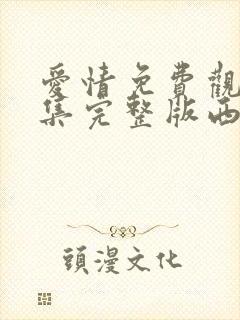 愛情免費觀
集完整版西
頭漫文化